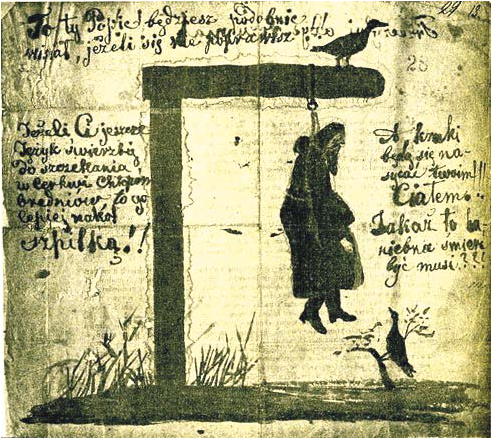 To ty Popie! będziesz podobnie
wisiał, jeżeli się nie poprawisz
29
28
Jeżeli Ci jeszcze
Język swierzbą
do szczekania
w Cerkwi Chłopom
bredniów, to go
lepiej nakol
szpilką!!
A kruki
będą się na-
sycać twoim!!!
Ciałem..
Jakaż to ha-
niebna smierć
być musi???!